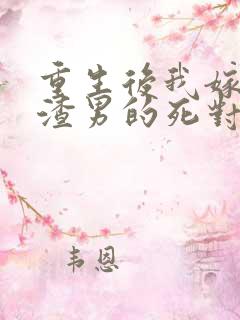 重生後我嫁
渣男的死對
韦恩